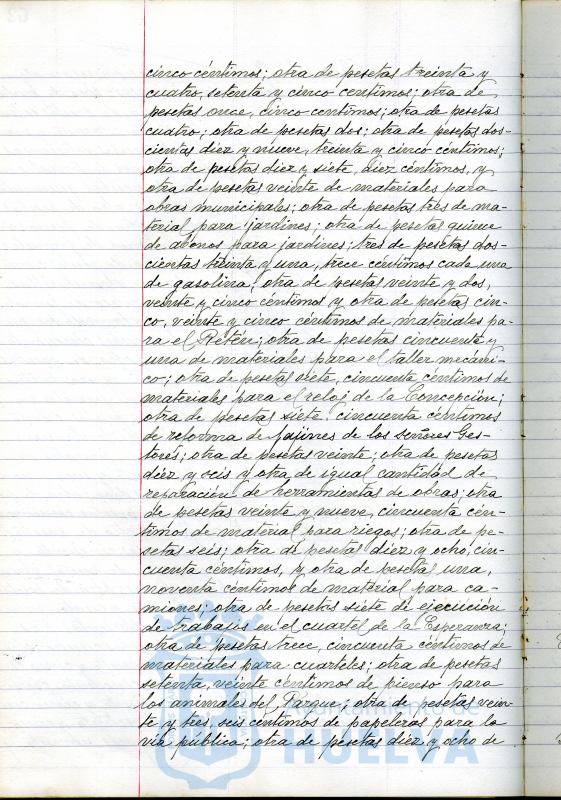 cinco céntimos; otra de pesetas treinta y
cuatro, setenta y cinco centimos; otra de
pesetas once, cinco centimos; otra de pesetas
cuatro; otra de pesetas dos; otra de pesetas dos-
cientas diez y nueve, treinta y cinco céntimos;
otra de pesetas diez y siete, diez céntimos, y
otra de pesetas veinte de materiales para
obras municipales; otra de pesetas tres de ma-
terial para jardines; otra de pesetas quince
de abonos para jardines; tres de pesetas dos-
cientas treinta y una, trece céntimos cada una
de gasolina; otra de pesetas veinte y dos,
veinte y cinco céntimos y otra de pesetas cin-
co, veinte y cinco céntimos de materiales pa-
ra el Retén; otra de pesetas cincuenta y
una de materiales para el taller mecáni-
co; otra de pesetas siete, cincuenta céntimos de
materiales para el reloj de la Concepción;
otra de pesetas siete cincuenta céntimos
de reforma de fajines de los señores Ges-
tores; otra de pesetas veinte; otra de pesetas
diez y seis y otra de igual cantidad de
reparación de herramientas de obras; otra
de pesetas veinte y nueve, cincuenta cén-
timos de material para riegos; otra de pe-
setas seis; otra de pesetas diez y ocho, cin-
cuenta céntimos, y otra de pesetas una,
noventa céntimos de material para ca-
miones; otra de pesetas siete de ejecución
de trabajos en el cuartel de la Esperanza;
otra de pesetas trece, cincuenta céntimos de
materiales para cuarteles; otra de pesetas
setenta, veinte céntimos de pienso para
los animales del Parque; otra de pesetas vein-
te y tres, seis céntimos de papeleras para la
vía pública; otra de pesetas diez y ocho de
HUELVA